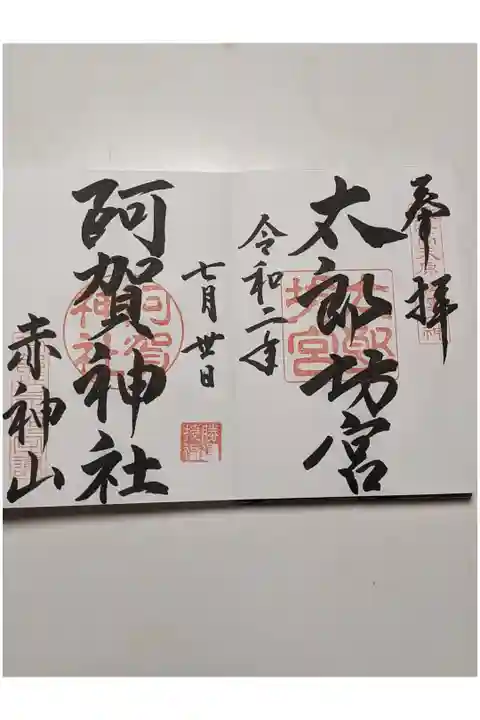 奉拝
太郎坊宮
太郎
坊宮
令和二年
七月丗日
阿賀神社
阿賀
神社
赤神山